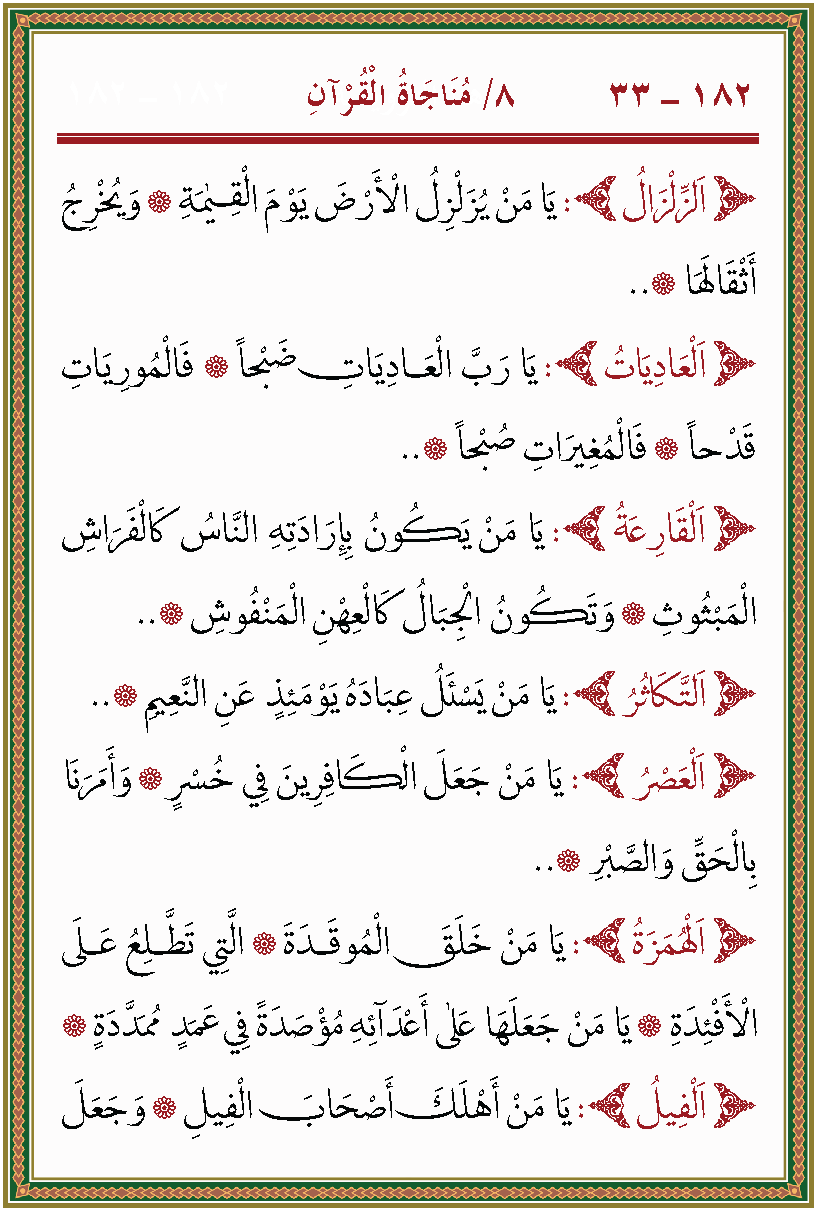 ١٨٢ – ٣٣ ٨/ مُنَاجَاةُ الْقُرْآنِ
﴿ اَلزِّلْزَالُ ﴾: يَا مَنْ يُزَلْزِلُ الْأَرْضَ يَوْمَ الْقِيٰمَةِ ۞ وَيُخْرِجُ
أَثْقَالَهَا ۞..
﴿ اَلْعَادِيَاتُ ﴾: يَا رَبَّ الْعَـادِيَاتِ ضَبْحاً ۞ فَالْمُورِيَاتِ
قَدْحاً ۞ فَالْمُغِيرَاتِ صُبْحاً ۞..
﴿ اَلْقَارِعَةُ ﴾: يَا مَنْ يَكُونُ بِإِرَادَتِهِ النَّاسُ كَالْفَرَاشِ
الْمَبْثُوثِ ۞ وَتَكُونُ الْجِبَالُ كَالْعِهْنِ الْمَنْفُوشِ ۞..
﴿ اَلتَّكَاثُرُ ﴾: يَا مَنْ يَسْئَلُ عِبَادَهُ يَوْمَئِذٍ عَنِ النَّعِيمِ ۞..
﴿ اَلْعَصْرُ ﴾: يَا مَنْ جَعَلَ الْكَافِرِينَ فِي خُسْرٍ ۞ وَأَمَرَنَا
بِالْحَقِّ وَالصَّبْرِ ۞..
﴿ اَلْهُمَزَةُ ﴾: يَا مَنْ خَلَقَ الْمُوقَـدَةَ ۞ الَّتِي تَطَّلِعُ عَـلَى
الْأَفْئِدَةِ ۞ يَا مَنْ جَعَلَهَا عَلٰى أَعْدَآئِهِ مُؤْصَدَةً فِي عَمَدٍ مُمَدَّدَةٍ ۞
﴿ اَلْفِيلُ ﴾: يَا مَنْ أَهْلَكَ أَصْحَابَ الْفِيلِ ۞ وَجَعَلَ